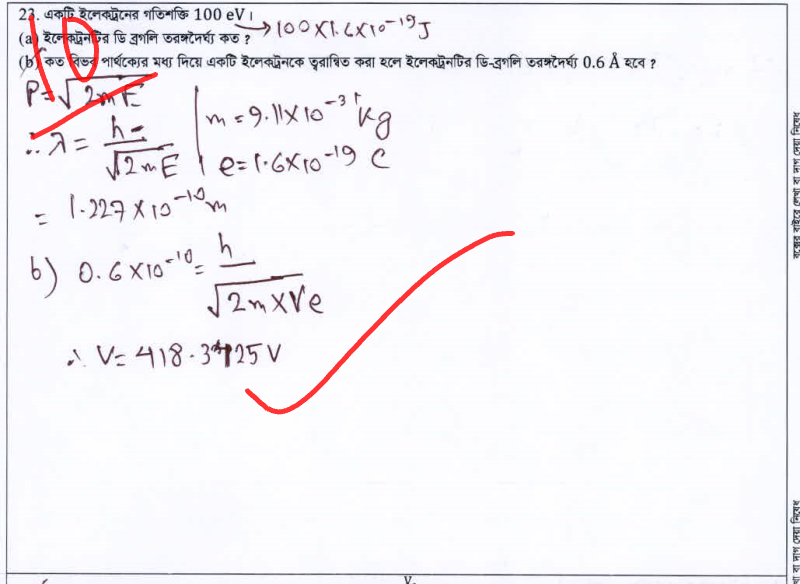 23. একটি ইলেকট্রনের গতিশক্তি 100 eV। → 100×1.6×10⁻¹⁹J
(a) ইলেকট্রনটির ডি ব্রগলি তরঙ্গদৈর্ঘ্য কত ?
(b) কত বিভব পার্থক্যের মধ্য দিয়ে একটি ইলেকট্রনকে ত্বরান্বিত করা হলে ইলেকট্রনটির ডি-ব্রগলি তরঙ্গদৈর্ঘ্য 0.6 Å হবে ?
10
P=√2mE
∴ λ = h/√2mE
m = 9.11×10⁻³¹ kg
e=1.6×10⁻¹⁹ C
= 1.227×10⁻¹⁰m
b) 0.6×10⁻¹⁰= h/√2m×Ve
∴ V= 418.3425 V
বক্সের বাইরে লেখা বা দাগ দেয়া নিষেধ
বা দাগ দেয়া নিষেধ